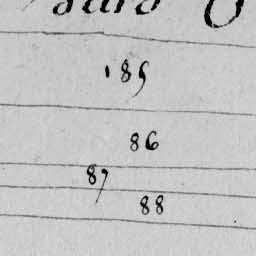 185
86
87
88